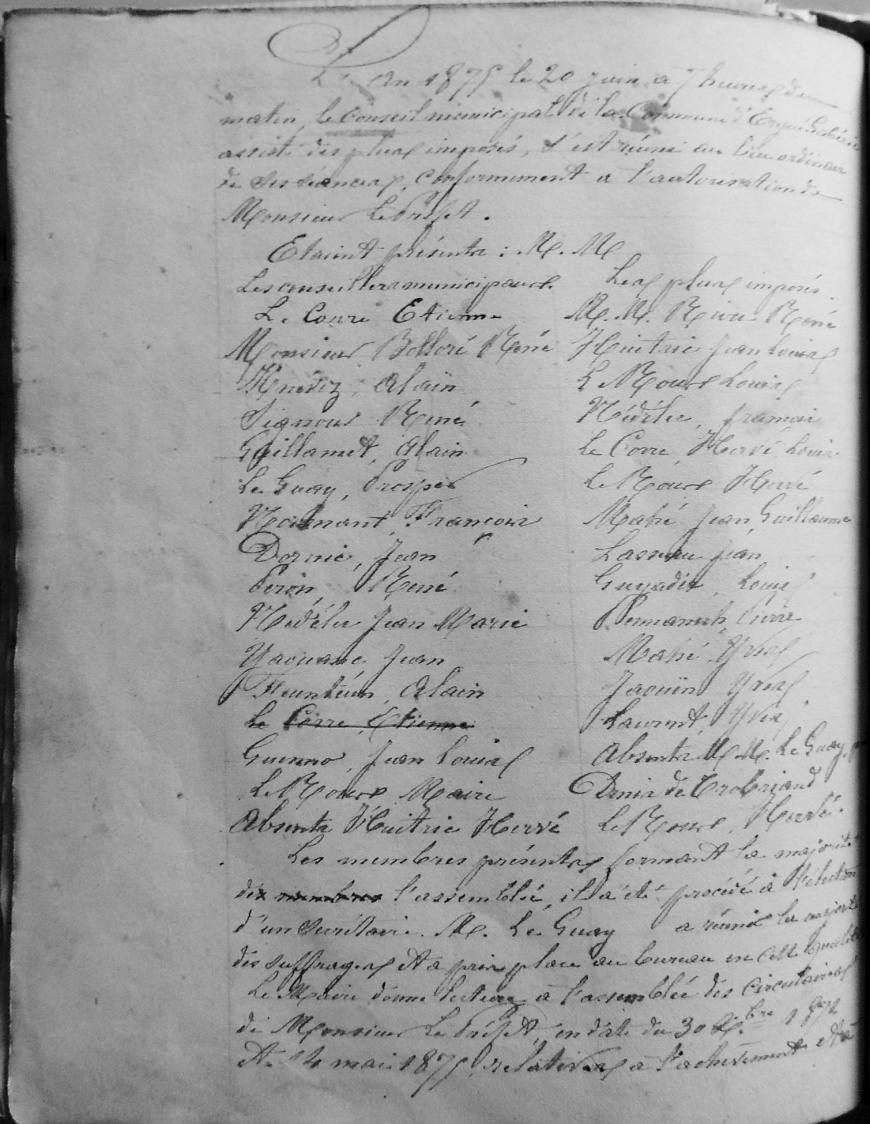 L'an 1875 le 20 juin à 7 heures du
matin, le Conseil municipal de la Commune d'Ergué-Gabéric
assisté des plus imposés, s'est réuni au lieu ordinaire
de ses séances, conformément à l'autorisation de
Monsieur Le Préfet.
Etaient présents : M. M
Les conseillers municipaux. Les plus imposés.
Le Corre Etienne M. M. Riou René
Monsieur Bolloré René Huitric Jean Louis
Alain Le Roux Louis
Signour René Nédélec, français
Guillamet, Alain Le Corre, Hervé Louis
Le Guay, Prosper Le Roux Hervé
François Mahé Jean Guillaume
Dornic, Jean Lasseau Jean
Péron, René Guyader, Louis
Nédélec Jean Marie Pennanech, Pierre
Yaouanc Jean Mahé Yves
Feunteun, Alain Jaouin Yves
Le Corre, Etienne Laurent, Yves
Guenno, Jean Louis Absents M M. Le Guay,
Le Roux Maire Denis de Trobriand
Absents Huitric Hervé Le Roux, Hervé.
Les membres présents, formant la majorité
dix membres l'assemblée, il a été procédé à l'élection
d'un secrétaire. M. Le Guay a réuni la majorité
des suffrages et a pris place au bureau en cette qualité
Le Maire donne lecture à l'assemblée des circulaires
de Monsieur Le Préfet en date du 30 bre 1874
et 14 mai 1875, relatives à l'achèvement et à